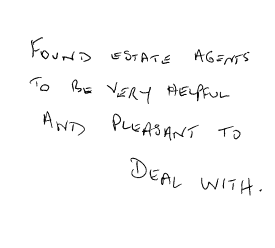 FOUND ESTATE AGENTS
TO BE VERY HELPFUL
AND PLEASANT TO
DEAL WITH.